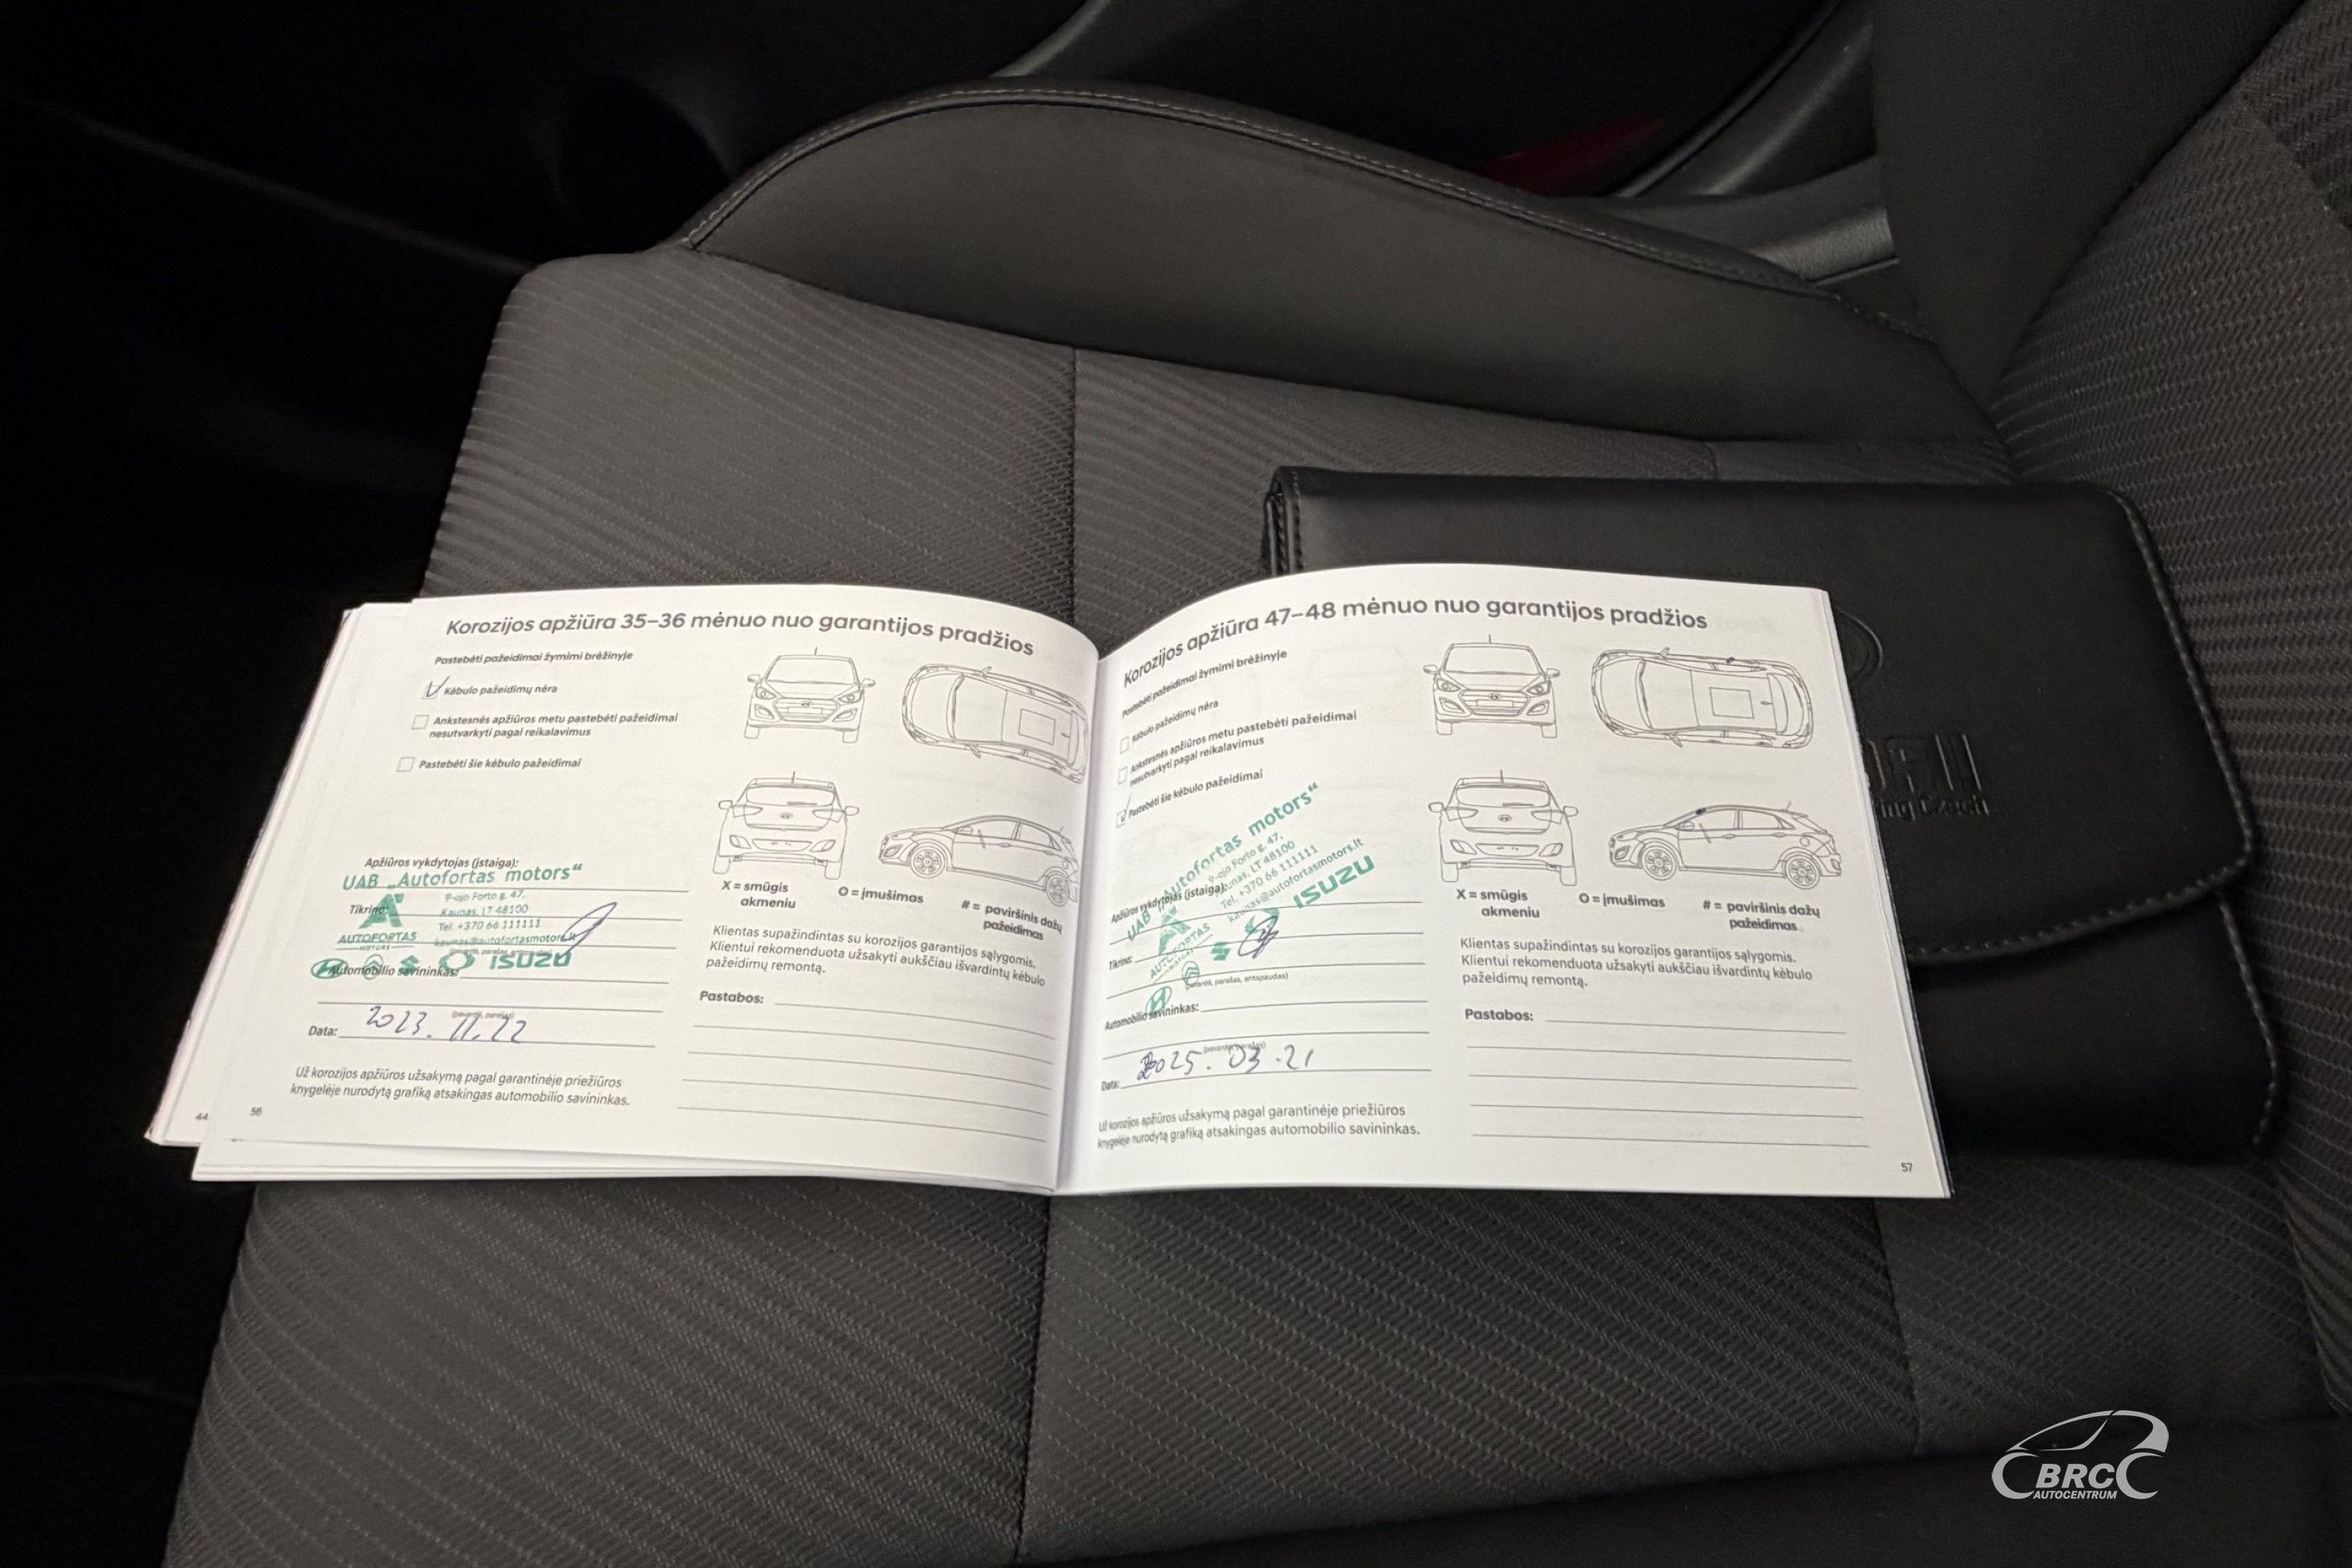 Korozijos apžiūra 35–36 mėnuo nuo garantijos pradžios
Pastebėti pažeidimai žymimi brėžinyje
Kėbulo pažeidimų nėra
Ankstesnės apžiūros metu pastebėti pažeidimai
nesutvarkyti pagal reikalavimus
Pastebėti šie kėbulo pažeidimai
Apžiūros vykdytojas (įstaiga):
UAB „Autofortas motors“
9-ojo Forto g. 47,
Kaunas, LT 48100
Tel. +370 66 111111
kaunas@autofortasmotors.lt
Tikrino:
AUTOFORTAS
MOTORS
ISUZU
Automobilio savininkas:
(pavardė, parašas)
Data: 2023. 11. 22
Už korozijos apžiūros užsakymą pagal garantinėje priežiūros
knygelėje nurodytą grafiką atsakingas automobilio savininkas.
44
56
X = smūgis
akmeniu
O = įmušimas
# = paviršinis dažų
pažeidimas
Klientas supažindintas su korozijos garantijos sąlygomis.
Klientui rekomenduota užsakyti aukščiau išvardintų kėbulo
pažeidimų remontą.
Pastabos:
Korozijos apžiūra 47–48 mėnuo nuo garantijos pradžios
Pastebėti pažeidimai žymimi brėžinyje
Kėbulo pažeidimų nėra
Ankstesnės apžiūros metu pastebėti pažeidimai
nesutvarkyti pagal reikalavimus
Pastebėti šie kėbulo pažeidimai
Apžiūros vykdytojas (įstaiga):
UAB „Autofortas motors“
9-ojo Forto g. 47,
Kaunas, LT 48100
Tel. +370 66 111111
kaunas@autofortasmotors.lt
AUTOFORTAS
MOTORS
ISUZU
Tikrino:
(pavardė, parašas, antspaudas)
Automobilio savininkas:
(pavardė, parašas)
Data: 2025. 03. 21
Už korozijos apžiūros užsakymą pagal garantinėje priežiūros
knygelėje nurodytą grafiką atsakingas automobilio savininkas.
X = smūgis
akmeniu
O = įmušimas
# = paviršinis dažų
pažeidimas
Klientas supažindintas su korozijos garantijos sąlygomis.
Klientui rekomenduota užsakyti aukščiau išvardintų kėbulo
pažeidimų remontą.
Pastabos:
57
Czech
BRC
AUTOCENTRUM